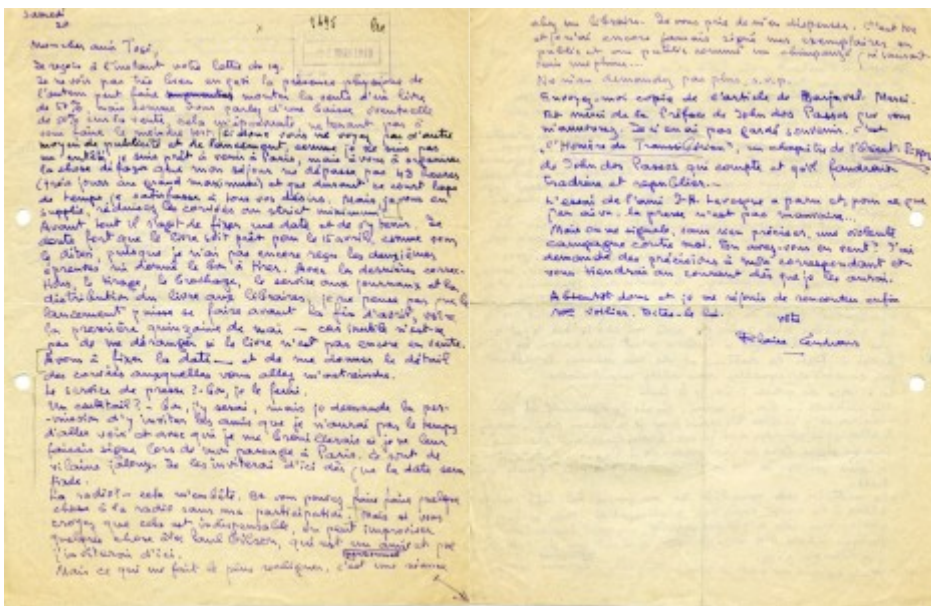 Samedi
20
2695
Mon cher ami Tosi,
Je reçois à l'instant votre lettre du 19.
Je ne vois pas très bien en quoi la présence physique de
l'auteur peut faire augmenter monter la vente d'un livre
de 50%, mais comme vous parlez d'une baisse éventuelle
de 50% sur la vente, cela m'épouvante, ne tenant pas à
vous faire le moindre tort. Si donc vous ne voyez pas d'autre
moyen de publicité et de lancement, comme je ne suis pas
un entêté, je suis prêt à venir à Paris, mais à vous d'organiser
la chose de façon que mon séjour ne dépasse pas 48 heures
(trois jours au grand maximum) et que durant ce court laps
de temps je satisfasse à tous vos désirs. Mais je vous en
supplie, réduisez les corvées au strict minimum.
Avant tout il s'agit de fixer une date et de s'y tenir. Je
doute fort que le livre soit prêt pour le 15 avril, comme vous
le dites, puisque je n'ai pas encore reçu les deuxièmes
épreuves ni donné le bon à tirer. Avec les dernières correc-
tions, le tirage, le brochage, le service aux journaux et la
distribution du livre aux libraires, je ne pense pas que le
lancement puisse se faire avant la fin d'avril, voire
la première quinzaine de mai — cas inutile n'est-ce
pas de me déranger si le livre n'est pas encore en vente.
À vous à fixer la date — et de me donner le détail
des corvées auxquelles vous allez m'astreindre.
Le service de presse ? - Bon, je le ferai.
Un cocktail ? - Bon, j'y serai, mais je demande la per-
-mission d'y inviter les amis que je n'aurai pas le temps
d'aller voir et avec qui je me brouillerais si je ne leur
faisais signe lors de mon passage à Paris. Ce sont de
vilains jaloux. Je les inviterai d'ici dès que la date sera
fixée.
La radio ? - cela m'embête. Si vous pouvez faire faire quelque
chose à la radio sans ma participation. Mais si vous
croyez que cela est indispensable, on peut improviser
quelque chose chez Paul Gilson, qui est un ami et que
j'inviterai d'ici.
Mais ce qui me fait le plus rechigner, c'est une séance
chez un libraire. Je vous prie de m'en dispenser. C'est
et je n'ai encore jamais signé mes exemplaires en
public et au public comme un chimpanzé qui saurait
tenir une plume...
Ne m'en demandez pas plus, s.v.p.
Envoyez-moi copie de l'article de Barjavel. Merci.
Et merci de la Préface de John dos Passos que vous
m'annoncez. Je n'en ai pas gardé souvenir. C'est
"l'Homère du Transsibérien", un chapitre de l'Orient-Express
de John dos Passos qui compte et qu'il faudrait
traduire et republier...
L'essai de l'ami J.H. Levesque a paru et, pour ce que
j'en ai vu, la presse n'est pas mauvaise...
Mais on me signale, sans rien préciser, une violente
campagne contre moi. En avez-vous eu vent ? J'ai
demandé des précisions à mon correspondant et
vous tiendrai au courant dès que je les aurai.
À bientôt donc et je me réjouis de rencontrer enfin
vollier. Dites-le lui.
votre
Blaise Cendrars